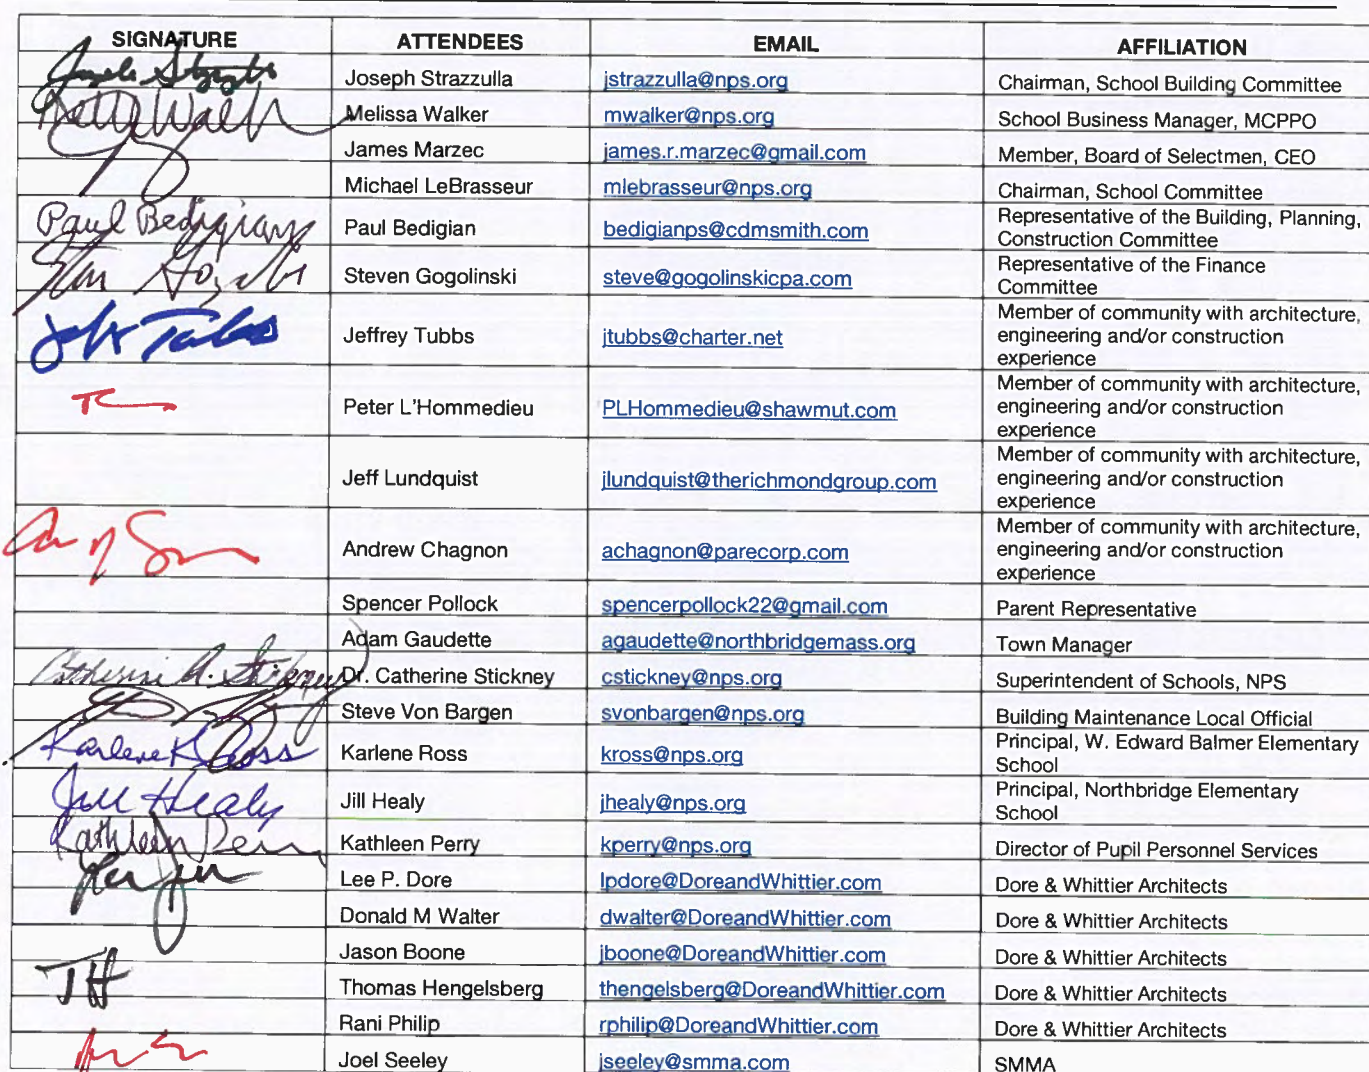 SIGNATURE ATTENDEES EMAIL AFFILIATION
Joseph Strazzulla jstrazzulla@nps.org Chairman, School Building Committee
Melissa Walker mwalker@nps.org School Business Manager, MCPPO
James Marzec james.r.marzec@gmail.com Member, Board of Selectmen, CEO
Michael LeBrasseur mlebrasseur@nps.org Chairman, School Committee
Paul Bedigian Paul Bedigian bedigianps@cdmsmith.com Representative of the Building, Planning,
Construction Committee
Steven Gogolinski steve@gogolinskicpa.com Representative of the Finance
Committee
Member of community with architecture,
Jeff Tubbs Jeffrey Tubbs jtubbs@charter.net engineering and/or construction
experience
Member of community with architecture,
Peter L'Hommedieu PLHommedieu@shawmut.com engineering and/or construction
experience
Member of community with architecture,
Jeff Lundquist jlundquist@therichmondgroup.com engineering and/or construction
experience
Member of community with architecture,
Andrew Chagnon achagnon@parecorp.com engineering and/or construction
experience
Spencer Pollock spencerpollock22@gmail.com Parent Representative
Adam Gaudette agaudette@northbridgemass.org Town Manager
Catherine A. Stickney Dr. Catherine Stickney cstickney@nps.org Superintendent of Schools, NPS
Steve Von Bargen svonbargen@nps.org Building Maintenance Local Official
Karlene K Ross Karlene Ross kross@nps.org Principal, W. Edward Balmer Elementary
School
Jill Healy Jill Healy jhealy@nps.org Principal, Northbridge Elementary
School
Kathleen Perry Kathleen Perry kperry@nps.org Director of Pupil Personnel Services
Lee P. Dore lpdore@DoreandWhittier.com Dore & Whittier Architects
Donald M Walter dwalter@DoreandWhittier.com Dore & Whittier Architects
Jason Boone jboone@DoreandWhittier.com Dore & Whittier Architects
TH Thomas Hengelsberg thengelsberg@DoreandWhittier.com Dore & Whittier Architects
Rani Philip rphilip@DoreandWhittier.com Dore & Whittier Architects
Joel Seeley jseeley@smma.com SMMA